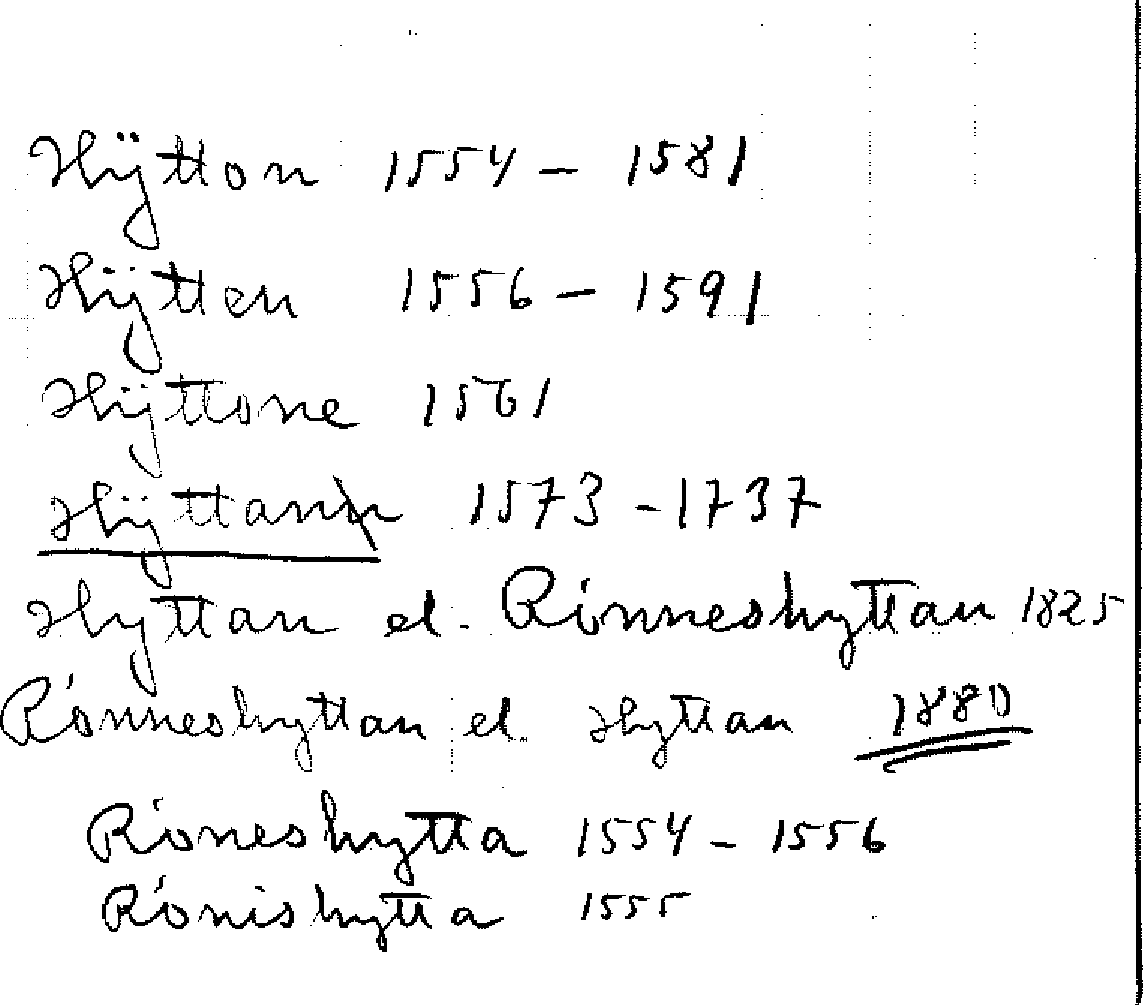 Hÿtton 1554 – 1581
Hÿtten 1556 – 1591
Hÿttone 1561
Hÿttann 1573 - 1737
Hyttan el. Rönneshyttan 1825
Rönneshyttan el. Hyttan 1880
Röneshytta 1554 – 1556
Rönishytta 1555